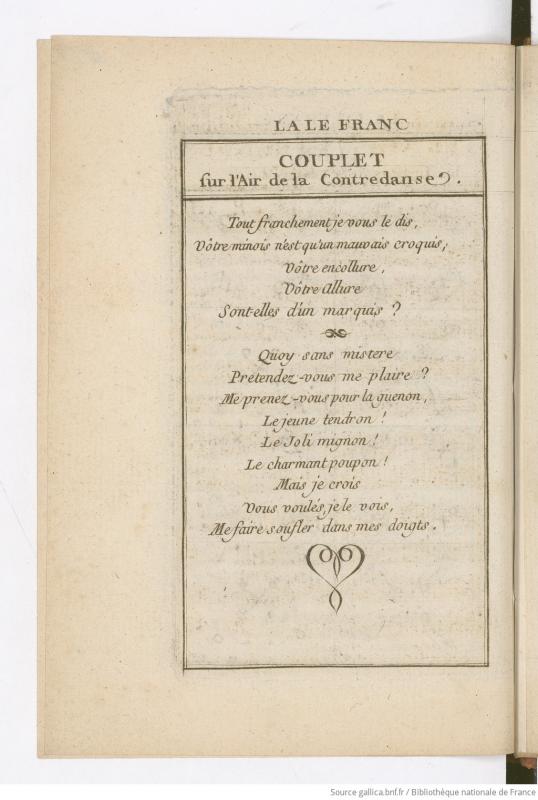 LA LE FRANC
COUPLET
sur l'Air de la Contredanse.
Tout franchement je vous le dis,
Vôtre minois n'est qu'un mauvais croquis;
Vôtre encollure,
Vôtre Allure
Sont-elles d'un marquis ?
Quoy sans mistere
Prétendez-vous me plaire ?
Me prenez-vous pour la guenon,
Le jeune tendron !
Le Joli mignon !
Le charmant poupon !
Mais je crois
Vous voulés, je le vois,
Me faire soufler dans mes doigts.
Source gallica.bnf.fr / Bibliothèque nationale de France